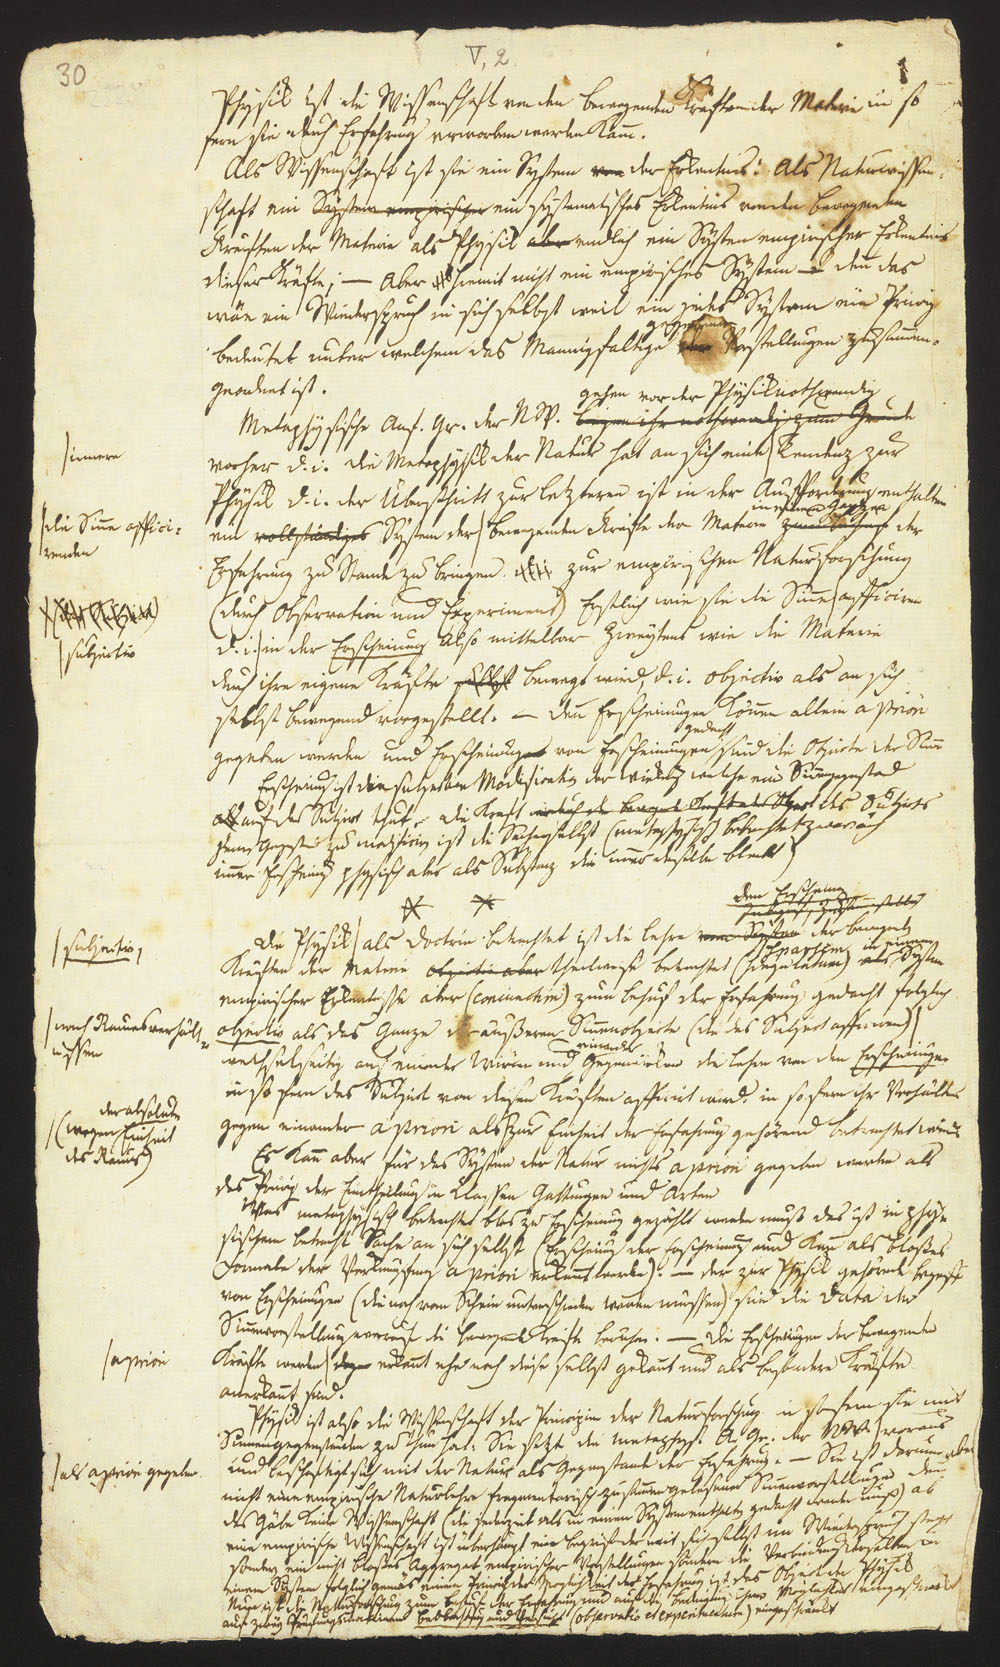 30
V, 2
1
Physik ist die Wissenschaft von den bewegenden Kräften der Materie in so
fern sie durch Erfahrung erworben werden kann.
Als Wissenschaft ist sie ein System von der Erkentnis: Als Naturwissen-
schaft ein System empirischer ein systematisches Erkentnis von den bewegenden
Kräften der Materie als Physik aber endlich ein System empirischer Erkentnis
dieser Kräfte; — Aber hiemit nicht ein empirisches System — den das
wäre ein Wiederspruch in sich selbst weil ein jedes System ein Princip
bedeutet unter welchem das Mannigfaltige gegebener Vorstellungen zusammen-
geordnet ist.
gehen vor der Physik nothwendig
Metaphysische Anf. Gr. der NW. liegen ihr nothwendig zum Grunde
vorher d. i. die Metaphysik der Natur hat an sich eine Tendenz zur
innere
Physik d. i. der Überschritt zur letzteren ist in der Aufforderung enthalten
ein vollständiges System der bewegenden Kräfte der Materie der
die Sinne affici-
renden
Erfahrung zu Stande zu bringen zur empirischen Naturforschung
(durch Observation und Experiment) Erstlich wie sie die Sinne afficiren
d. i. in der Erscheinung also mittelbar Zweytens wie die Materie
subjectiv
durch ihre eigene Kräfte selbst bewegt wird, d. i. objectiv als an sich
selbst bewegend vorgestellt. — Den Erscheinungen können allein a priori
gedacht
gegeben werden und Erscheinungen von Erscheinungen sind die Objecte der Sinne
Erscheinung ist die subjective Modification der Wirkung welche ein Sinnengegenstand
auf das Subject thut die Kraft des Subjects
ist die Sache selbst (metaphysisch) betrachtet zwar auch
immer Erscheinung physisch aber als Substanz die immer dieselbe bleibt)
Die Physik als Doctrin betrachtet ist die Lehre vom System der bewegenden
subjectiv,
Kräften der Materie objectiv aber theilweise betrachtet (sparsim) in einem System
empirischer Erkentnisse aber (coniunctim) zum Behuf der Erfahrung gedacht folglich
objectiv als das Ganze der äußeren Sinnenobjecte (die das Subject afficiren)
nach Raumesverhält-
nissen
wechselseitig auf einander wirken und die Lehre von den Erscheinungen
in so fern das Subject von diesen Kräften afficirt wird. in so fern ihr Verhältnis
gegen einander a priori als zur Einheit der Erfahrung gehörend betrachtet wird
der absoluten
(wegen Einheit
des Raums)
Es kan aber für das System der Natur nichts a priori gegeben werden als
das Princip der Eintheilung in Classen Gattungen und Arten
Was metaphysisch betrachtet blos zu Erscheinung gezählt werden muß das ist in phy-
sischem Betracht Sache an sich selbst (Erscheinung der Erscheinung und kan als bloßes
Formale der Verknüpfung a priori erkannt werden). — Der zur Physik gehörende Begriff
von Erscheinungen (die noch vom Schein unterschieden werden müssen) sind die Data der
Sinnenvorstellung worauf die bewegende Kräfte beruhen. — Die Erscheinungen der bewegenden
Kräfte werden erkannt ehe noch diese selbst gekannt und als besondere Kräfte
a priori
anerkannt sind.
Physik ist also die Wissenschaft der Principien der Naturforschung in so fern sie mit
Sinnengegenständen zu thun hat: Sie setzt die metaphys. A. Gr. der NW. voraus
und beschäftigt sich mit der Natur als Gegenstande der Erfahrung. — Sie ist darum aber
als a priori gegeben
nicht eine empirische Naturlehre fragmentarisch zusammengelesener Sinnenvorstellungen den
das gäbe keine Wissenschaft (die jederzeit als in einem System enthalten gedacht werden muß) als
eine empirische Wissenschaft ist überhaupt ein Begriff der mit sich selbst im Wiederspruch steht
sondern ein nicht bloßes Aggregat empirischer Vorstellungen sondern die Verbindung derselben in
einem System folglich gemäs einem Princip der Möglichkeit der Erfahrung ist das Object der Physik
Nun ist die Naturforschung zum Behuf der Erfahrung und auf die Bedingung ihrer Möglichkeit eingeschränkt
Beobachtung und Versuch (observatio et experimentum) eingeschränkt